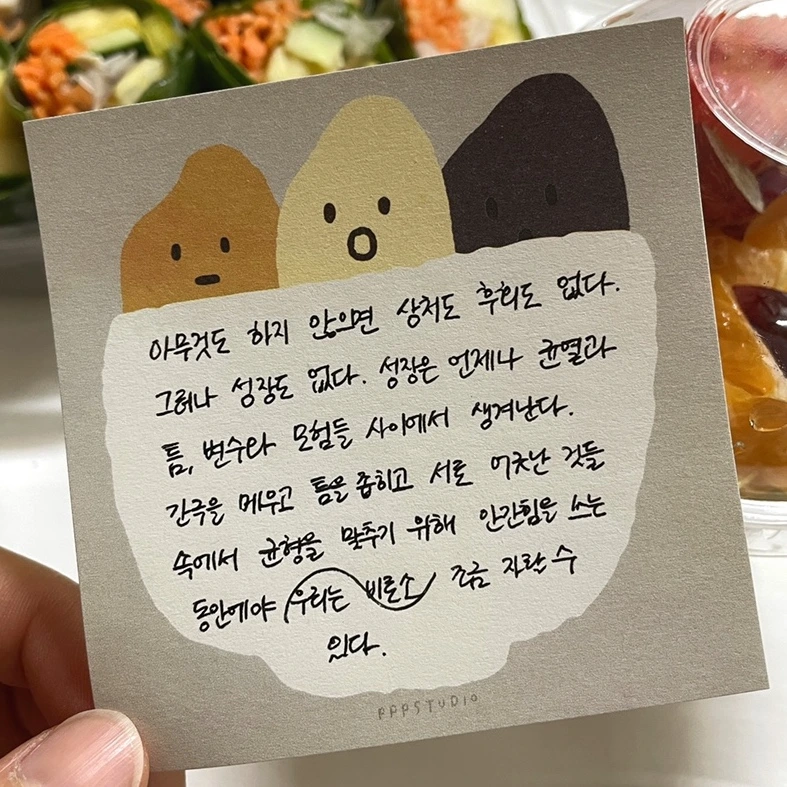 아무것도 하지 않으면 상처도 후회도 없다.
그러나 성장도 없다. 성장은 언제나 균열과
틈, 변수와 모험들 사이에서 생겨난다.
간극을 메우고 틈을 좁히고 서로 어긋난 것들
속에서 균형을 맞추기 위해 안간힘을 쓰는
동안에야 비로소 우리는 조금 자랄 수
있다.
PPPSTUDIO